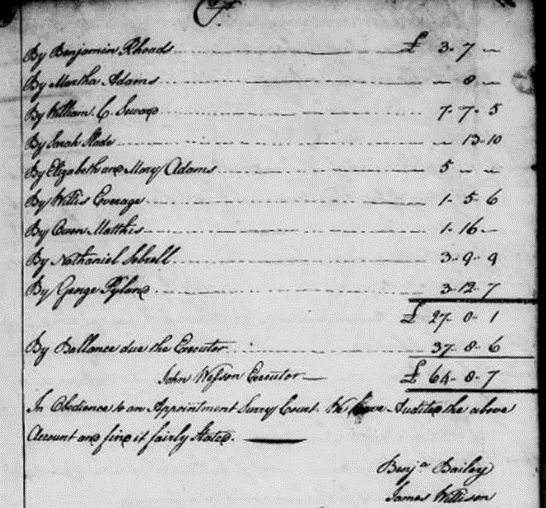 Cr
By Benjamin Rhoads £ 3 - 7 -
By Martha Adams - 8 -
By William C. Seward 7 - 7 - 5
By Sarah Slade - 13 - 10
By Elizabeth and Mary Adams 5 - -
By Willis Everage 1 - 5 - 6
By Owen Matthis 1 - 16 -
By Nathaniel Sebrell 3 - 9 - 9
By George Ryland 3 - 12 - 7
£ 27 - 0 - 1
By Ballance due the Executor 37 - 8 - 6
John Watson Executor £ 64 - 8 - 7
In Obedience to an Appointment Surry Court. We have Audited the above
Account and find it fairly Stated.
Benja. Bailey
James Willison